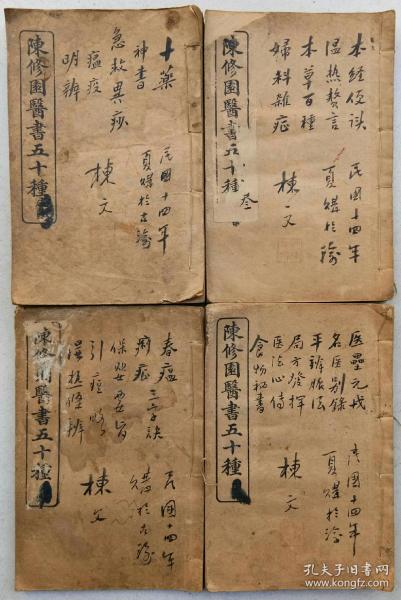 陳修園醫書五十種
十藥
神書
急救異痧
瘟疫
明辨
民國十四年
夏購於古渝
棟文
陳修園醫書五十種
本經便讀
温热贅言
本草百種
婦科雜症
民國十四年
夏購於渝
棟文
陳修園醫書五十種
春瘟
痢症三字訣
保嬰要旨
引痘略
湿热條辨
民國十四年
購於古渝
棟文
陳修園醫書五十種
医壘元戎
名医别錄
平辨脈法
局方發揮
医法心傳
食物秘書
民國十四年
夏購於渝
棟文
孔夫子旧书网
www.kongfz.com